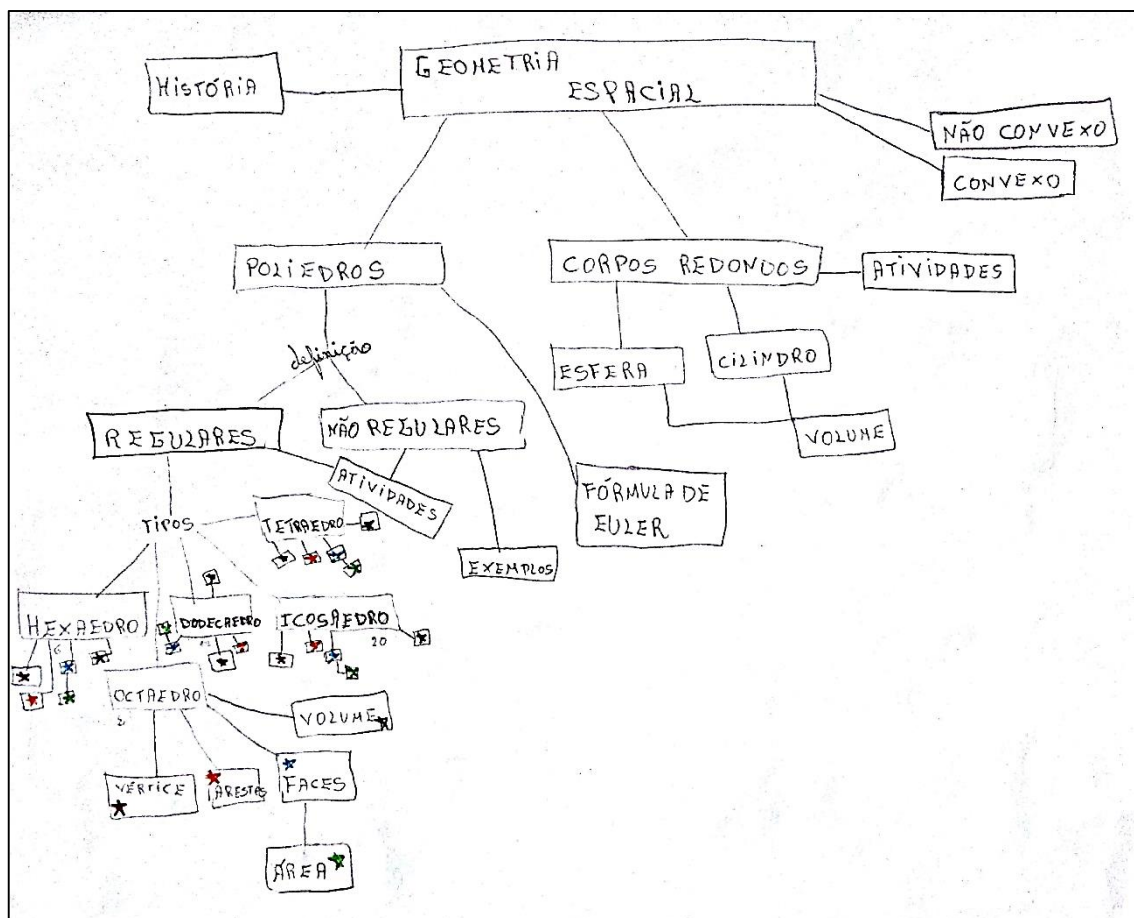 GEOMETRIA
ESPACIAL
HISTÓRIA
NÃO CONVEXO
CONVEXO
POLIEDROS
CORPOS REDONDOS
ATIVIDADES
definição
ESFERA
CILINDRO
VOLUME
REGULARES
NÃO REGULARES
ATIVIDADES
FÓRMULA DE
EULER
EXEMPLOS
TIPOS
TETRAEDRO
HEXAEDRO
6
DODECAEDRO
12
ICOSAEDRO
20
OCTAEDRO
VOLUME
VÉRTICE
ARESTAS
FACES
ÁREA